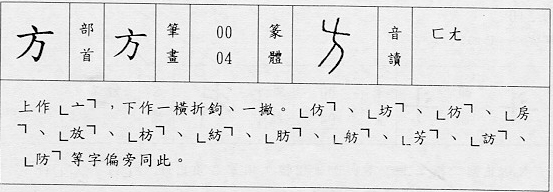 方 部首 方 筆畫 00 04 篆體 音讀 ㄈㄤ
上作「亠」，下作一橫折鉤、一撇。「仿」、「坊」、「彷」、「房
」、「放」、「枋」、「紡」、「肪」、「舫」、「芳」、「訪」、
「防」等字偏旁同此。